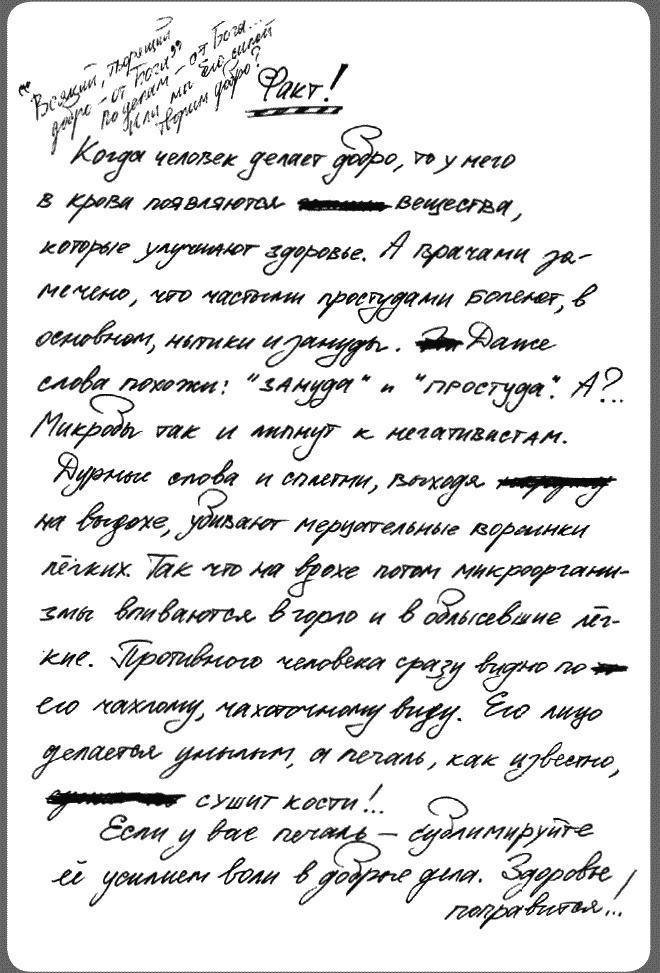 "Всякий, творящий
добро – от Бога"
По делам – от Бога...
Или мы Его силой
творим добро?
Факт!
Когда человек делает добро, то у него
в крови появляются вещества,
которые улучшают здоровье. А врачами за-
мечено, что частыми простудами болеют, в
основном, нытики и зануды. Даже
слова похожи: "зануда" и "простуда". А?..
Микробы так и липнут к негативистам.
Дурные слова и сплетни, выходя
на выдохе, убивают мерцательные ворсинки
лёгких. Так что на вдохе потом микрооргани-
змы впиваются в горло и в облысевшие лёг-
кие. Противного человека сразу видно по
его чахлому, чахоточному виду. Его лицо
делается унылым, а печаль, как известно,
сушит кости!..
Если у вас печаль – сублимируйте
её усилием воли в добрые дела. Здоровье
поправится...!